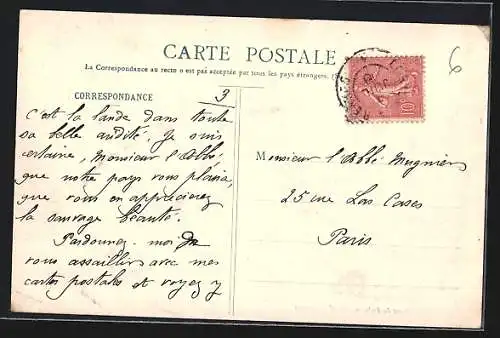 CARTE POSTALE
La Correspondance au recto n'est pas acceptée par tous les pays étrangers.
CORRESPONDANCE
3
6
10
c'est la lande dans toute
sa belle nudité. Je suis
certaine, Monsieur l'Abbé
que notre pays vous plaira,
que vous en apprécierez
la sauvage beauté.
Pardonnez-moi de
vous assaillir avec mes
cartes postales et voyez y
Monsieur l'Abbé Mugnier
25 rue Las Cases
Paris